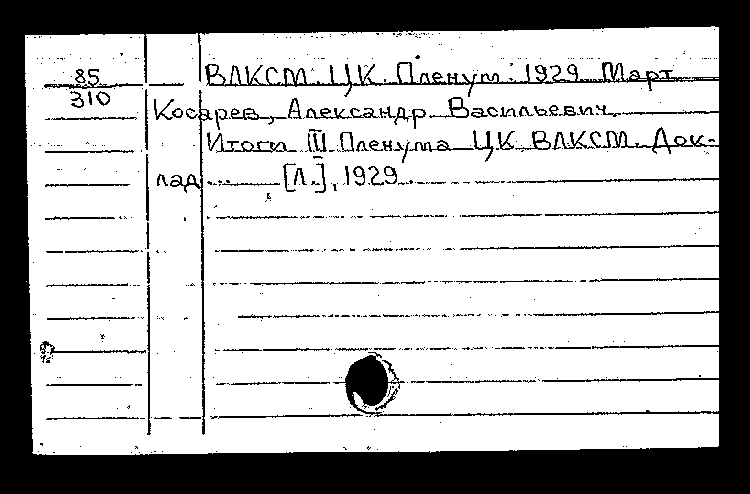 85
310
ВЛКСМ. ЦК. Пленум. 1929. Март
Косарев, Александр Васильевич.
Итоги III Пленума ЦК ВЛКСМ. Док-
лад... [Л.], 1929.